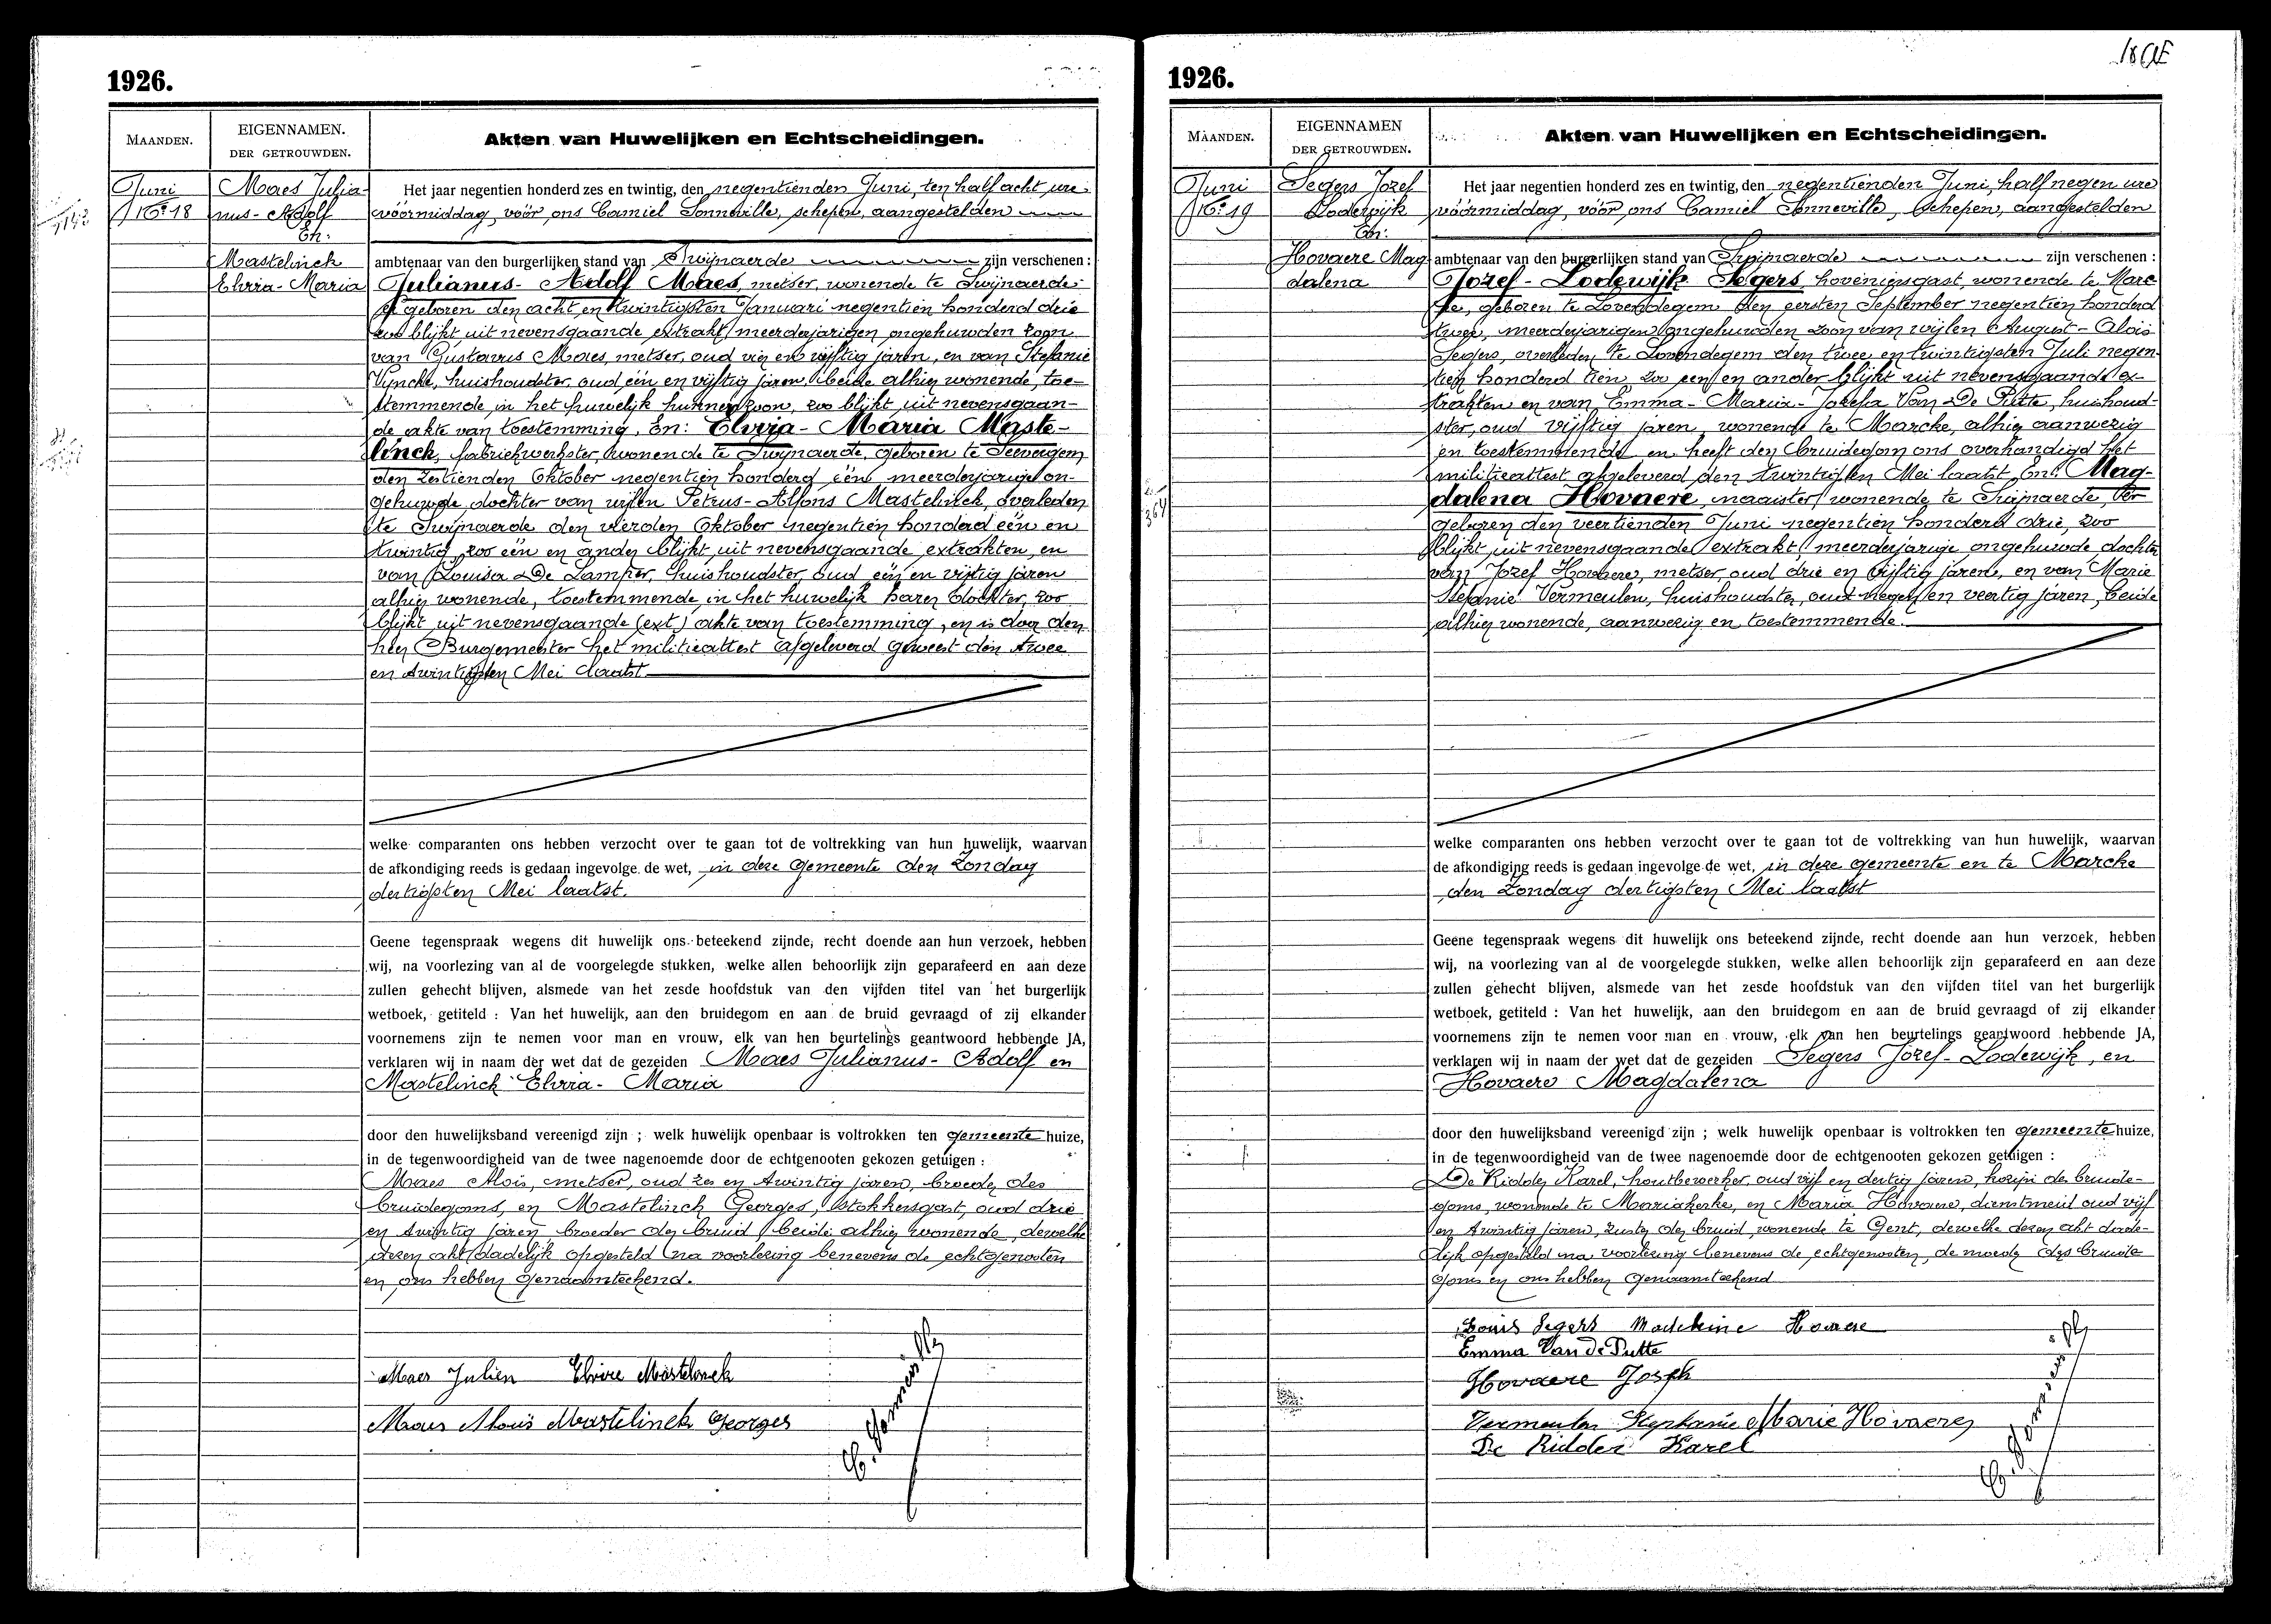 1926.
MAANDEN.
EIGENNAMEN.
DER GETROUWDEN.
Akten van Huwelijken en Echtscheidingen.
Juni
No 18
Maes Julia-
nus-Adolf
En:
Mastelinck
Elvria-Maria
Het jaar negentien honderd zes en twintig, den negentienden Juni, ten half acht ure
vóórmiddag, vóór ons Camiel Sonneville, schepen, aangestelden
ambtenaar van den burgerlijken stand van Swijnaerde zijn verschenen :
Julianus-Adolf Maes, metser, wonende te Swijnaerde
er geboren den acht en twintigsten Januari negentien honderd drie
zoo blijkt uit nevensgaande extrakt, meerderjarigen ongehuwden zoon
van Gustavus Maes, metser, oud vier en vijftig jaren, en van Stefanie
Vyncke, huishoudster, oud één en vijftig jaren, beide alhier wonende, toe-
stemmende in het huwelijk hunner zoon, zoo blijkt uit nevensgaan-
de akte van toestemming, En: Elvria-Maria Maste-
linck, fabriekwerkster, wonende te Swijnaerde, geboren te Seevergem
den zestienden Oktober negentien honderd één meerderjarige on-
gehuwde dochter van wijlen Petrus-Alfons Mastelinck, overleden
te Swijnaerde den vierden Oktober negentien honderd één en
twintig, zoo één en ander blijkt uit nevensgaande extrakten, en
van Louisa De Lamper, huishoudster, oud één en vijftig jaren
alhier wonende, toestemmende in het huwelijk harer dochter, zoo
blijkt uit nevensgaande (ext) akte van toestemming, en is door den
heer Burgemeester het militieattest afgeleverd geweest den twee
en twintigsten Mei laatst
welke comparanten ons hebben verzocht over te gaan tot de voltrekking van hun huwelijk, waarvan
de afkondiging reeds is gedaan ingevolge de wet, in deze gemeente den Zondag
dertigsten Mei laatst.
Geene tegenspraak wegens dit huwelijk ons beteekend zijnde, recht doende aan hun verzoek, hebben
wij, na voorlezing van al de voorgelegde stukken, welke allen behoorlijk zijn geparafeerd en aan deze
zullen gehecht blijven, alsmede van het zesde hoofdstuk van den vijfden titel van het burgerlijk
wetboek, getiteld : Van het huwelijk, aan den bruidegom en aan de bruid gevraagd of zij elkander
voornemens zijn te nemen voor man en vrouw, elk van hen beurtelings geantwoord hebbende JA,
verklaren wij in naam der wet dat de gezeiden Maes Julianus-Adolf en
Mastelinck Elvria-Maria
door den huwelijksband vereenigd zijn ; welk huwelijk openbaar is voltrokken ten gemeente huize,
in de tegenwoordigheid van de twee nagenoemde door de echtgenooten gekozen getuigen :
Maes Alois, metser, oud zes en twintig jaren, broeder des
bruidegoms, en Mastelinck Georges, stokkersgast, oud drie
en twintig jaren, broeder der bruid, beide alhier wonende, dewelke
dezen akt dadelijk opgesteld na voorlezing benevens de echtgenooten
en ons hebben genaamteekend.
Maes Julien Elvire Mastelinck
Maes Aloïs Mastelinck Georges
C. Sonneville
1926.
MAANDEN.
EIGENNAMEN
DER GETROUWDEN.
Akten van Huwelijken en Echtscheidingen.
Juni
No 19
Segers Jozef
Lodewijk
En:
Hovaere Mag
dalena
Het jaar negentien honderd zes en twintig, den negentienden Juni, half negen ure
vóórmiddag, vóór ons Camiel Sonneville, schepen, aangestelden
ambtenaar van den burgerlijken stand van Swijnaerde zijn verschenen :
Jozef-Lodewijk Segers, hoveniersgast, wonende te Marc
ke, geboren te Lovendegem den eersten September negentien honderd
twee, meerderjarigen ongehuwden zoon van wijlen August-Alois
Segers, overleden te Lovendegem den twee en twintigsten Juli negen-
tien honderd tien, zoo een en ander blijkt uit nevensgaande ex-
trakten en van Emma-Maria-Josefa Van De Putte, huishoud-
ster, oud vijftig jaren, wonende te Marcke, alhier aanwezig
en toestemmende en heeft den bruidegom ons overhandigd het
militieattest afgeleverd den twintigsten Mei laatst, En: Mag-
dalena Hovaere, naaister, wonende te Swijnaerde, er
geboren den veertienden Juni negentien honderd drie, zoo
blijkt uit nevensgaande extrakt, meerderjarige ongehuwde dochter
van Jozef Hovaere, metser, oud drie en vijftig jaren, en van Marie
Stefanie Vermeulen, huishoudster, oud negen en veertig jaren, beide
alhier wonende, aanwezig en toestemmende.
welke comparanten ons hebben verzocht over te gaan tot de voltrekking van hun huwelijk, waarvan
de afkondiging reeds is gedaan ingevolge de wet, in deze gemeente en te Marcke
den Zondag dertigsten Mei laatst
Geene tegenspraak wegens dit huwelijk ons beteekend zijnde, recht doende aan hun verzoek, hebben
wij, na voorlezing van al de voorgelegde stukken, welke allen behoorlijk zijn geparafeerd en aan deze
zullen gehecht blijven, alsmede van het zesde hoofdstuk van den vijfden titel van het burgerlijk
wetboek, getiteld : Van het huwelijk, aan den bruidegom en aan de bruid gevraagd of zij elkander
voornemens zijn te nemen voor man en vrouw, elk van hen beurtelings geantwoord hebbende JA,
verklaren wij in naam der wet dat de gezeiden Segers Jozef-Lodewijk, en
Hovaere Magdalena
door den huwelijksband vereenigd zijn ; welk huwelijk openbaar is voltrokken ten gemeente huize,
in de tegenwoordigheid van de twee nagenoemde door de echtgenooten gekozen getuigen :
De Ridder Karel, houtbewerker, oud vijf en dertig jaren, kozijn des bruide-
goms, wonende te Mariakerke, en Maria Hovaere, dienstmeid oud vijf
en twintig jaren, zuster der bruid, wonende te Gent, dewelke dezen akt dade-
lijk opgesteld na voorlezing benevens de echtgenooten, de moeder des bruide
goms en ons hebben genaamteekend
Louis Segers Madeleine Hovaere
Emma Van De Putte
Hovaere Joseph
Vermeulen Stephanie Marie Hovaere
De Ridder Karel
C. Sonneville